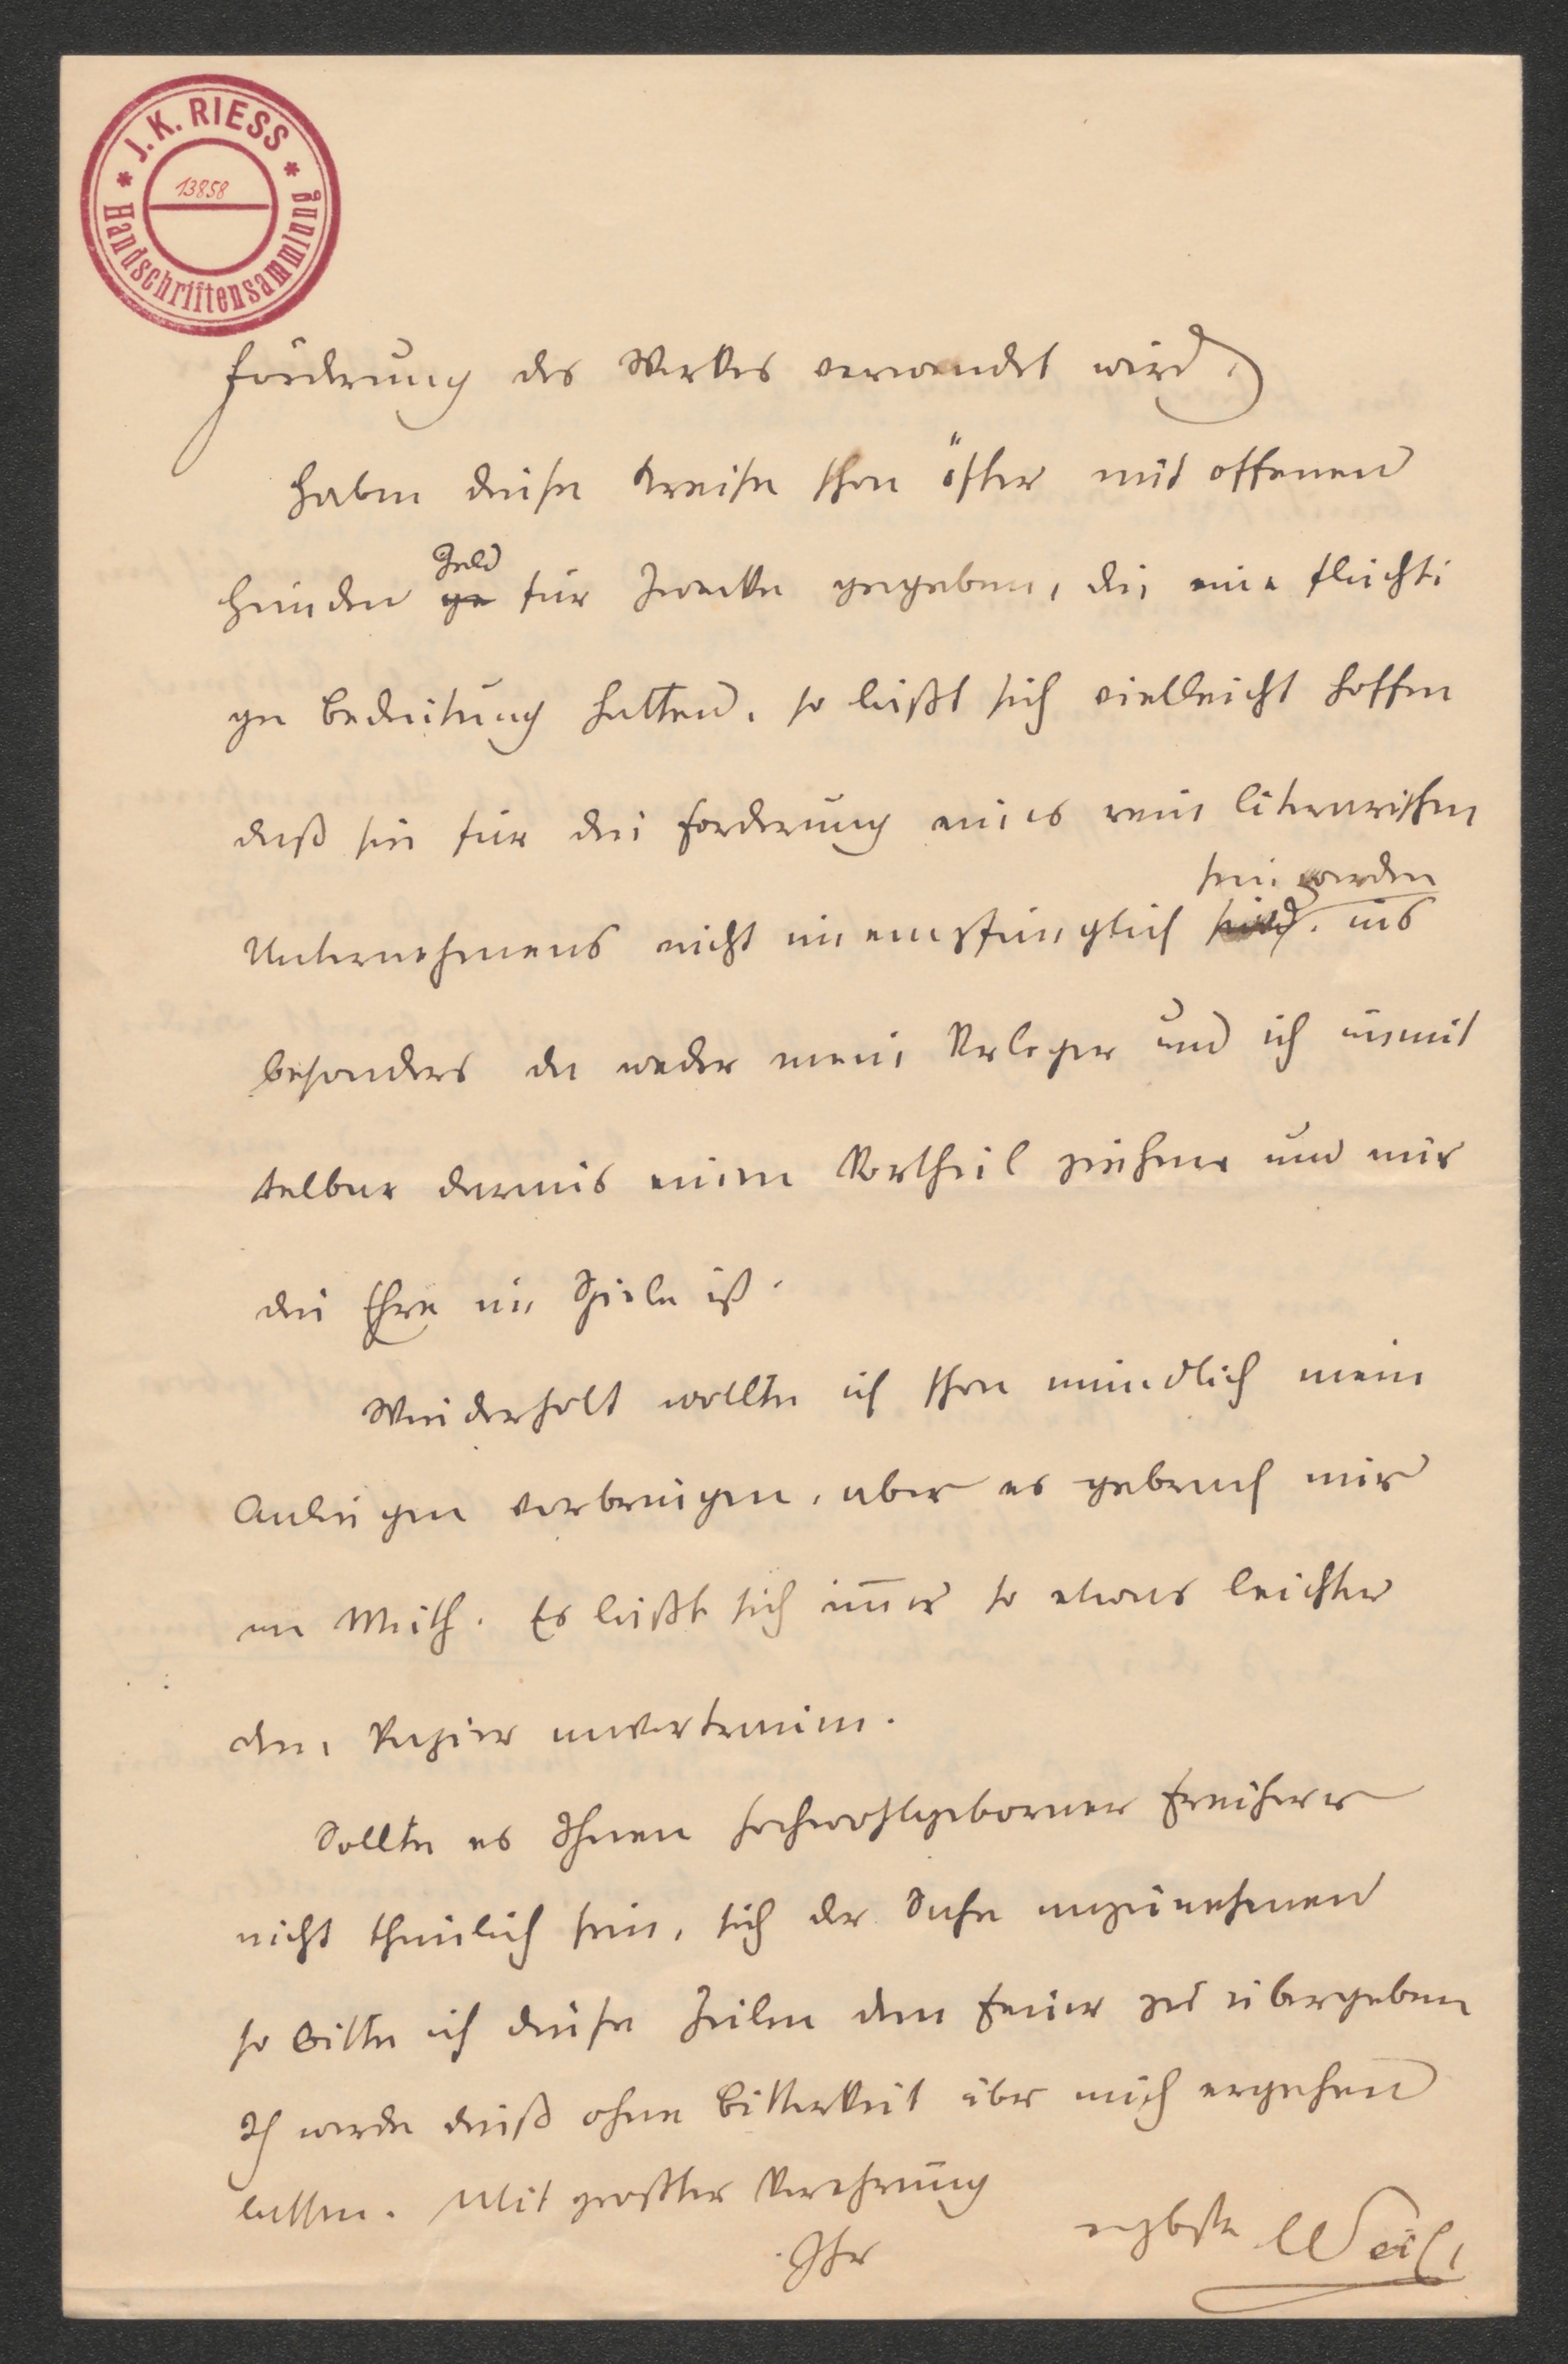 J. K. RIESS
13858
Handschriftensammlung
Förderung des Werkes verwendet wird.
Haben diese Kreise schon öfter mit offenen
Geld
Händen ge für Zwecke gegeben, die eine flüchti
ge Bedeutung hatten, so läßt sich vielleicht hoffen
daß sie für die Förderung eines rein literarischen
sein werden
Unternehmens nicht unempfänglich sind. ins
besonders da weder mein Verleger und ich unmit
telbar daraus einen Vortheil ziehen und nur
die Ehre im Spiele ist.
Wiederholt wollte ich schon mündlich mein
Anliegen vorbringen, aber es gebrach mir
an Muth. Es läßt sich immer so etwas leichter
dem Papier anvertrauen.
Sollte es Ihnen hochwohlgeborner Freiherr
nicht thunlich sein, sich der Sache anzunehmen
so bitte ich diese Zeilen dem Feuer zu übergeben
Ich werde dieß ohne Bitterkeit über mich ergehen
lassen. Mit größter Verehrung
Ihr ergbste Weil